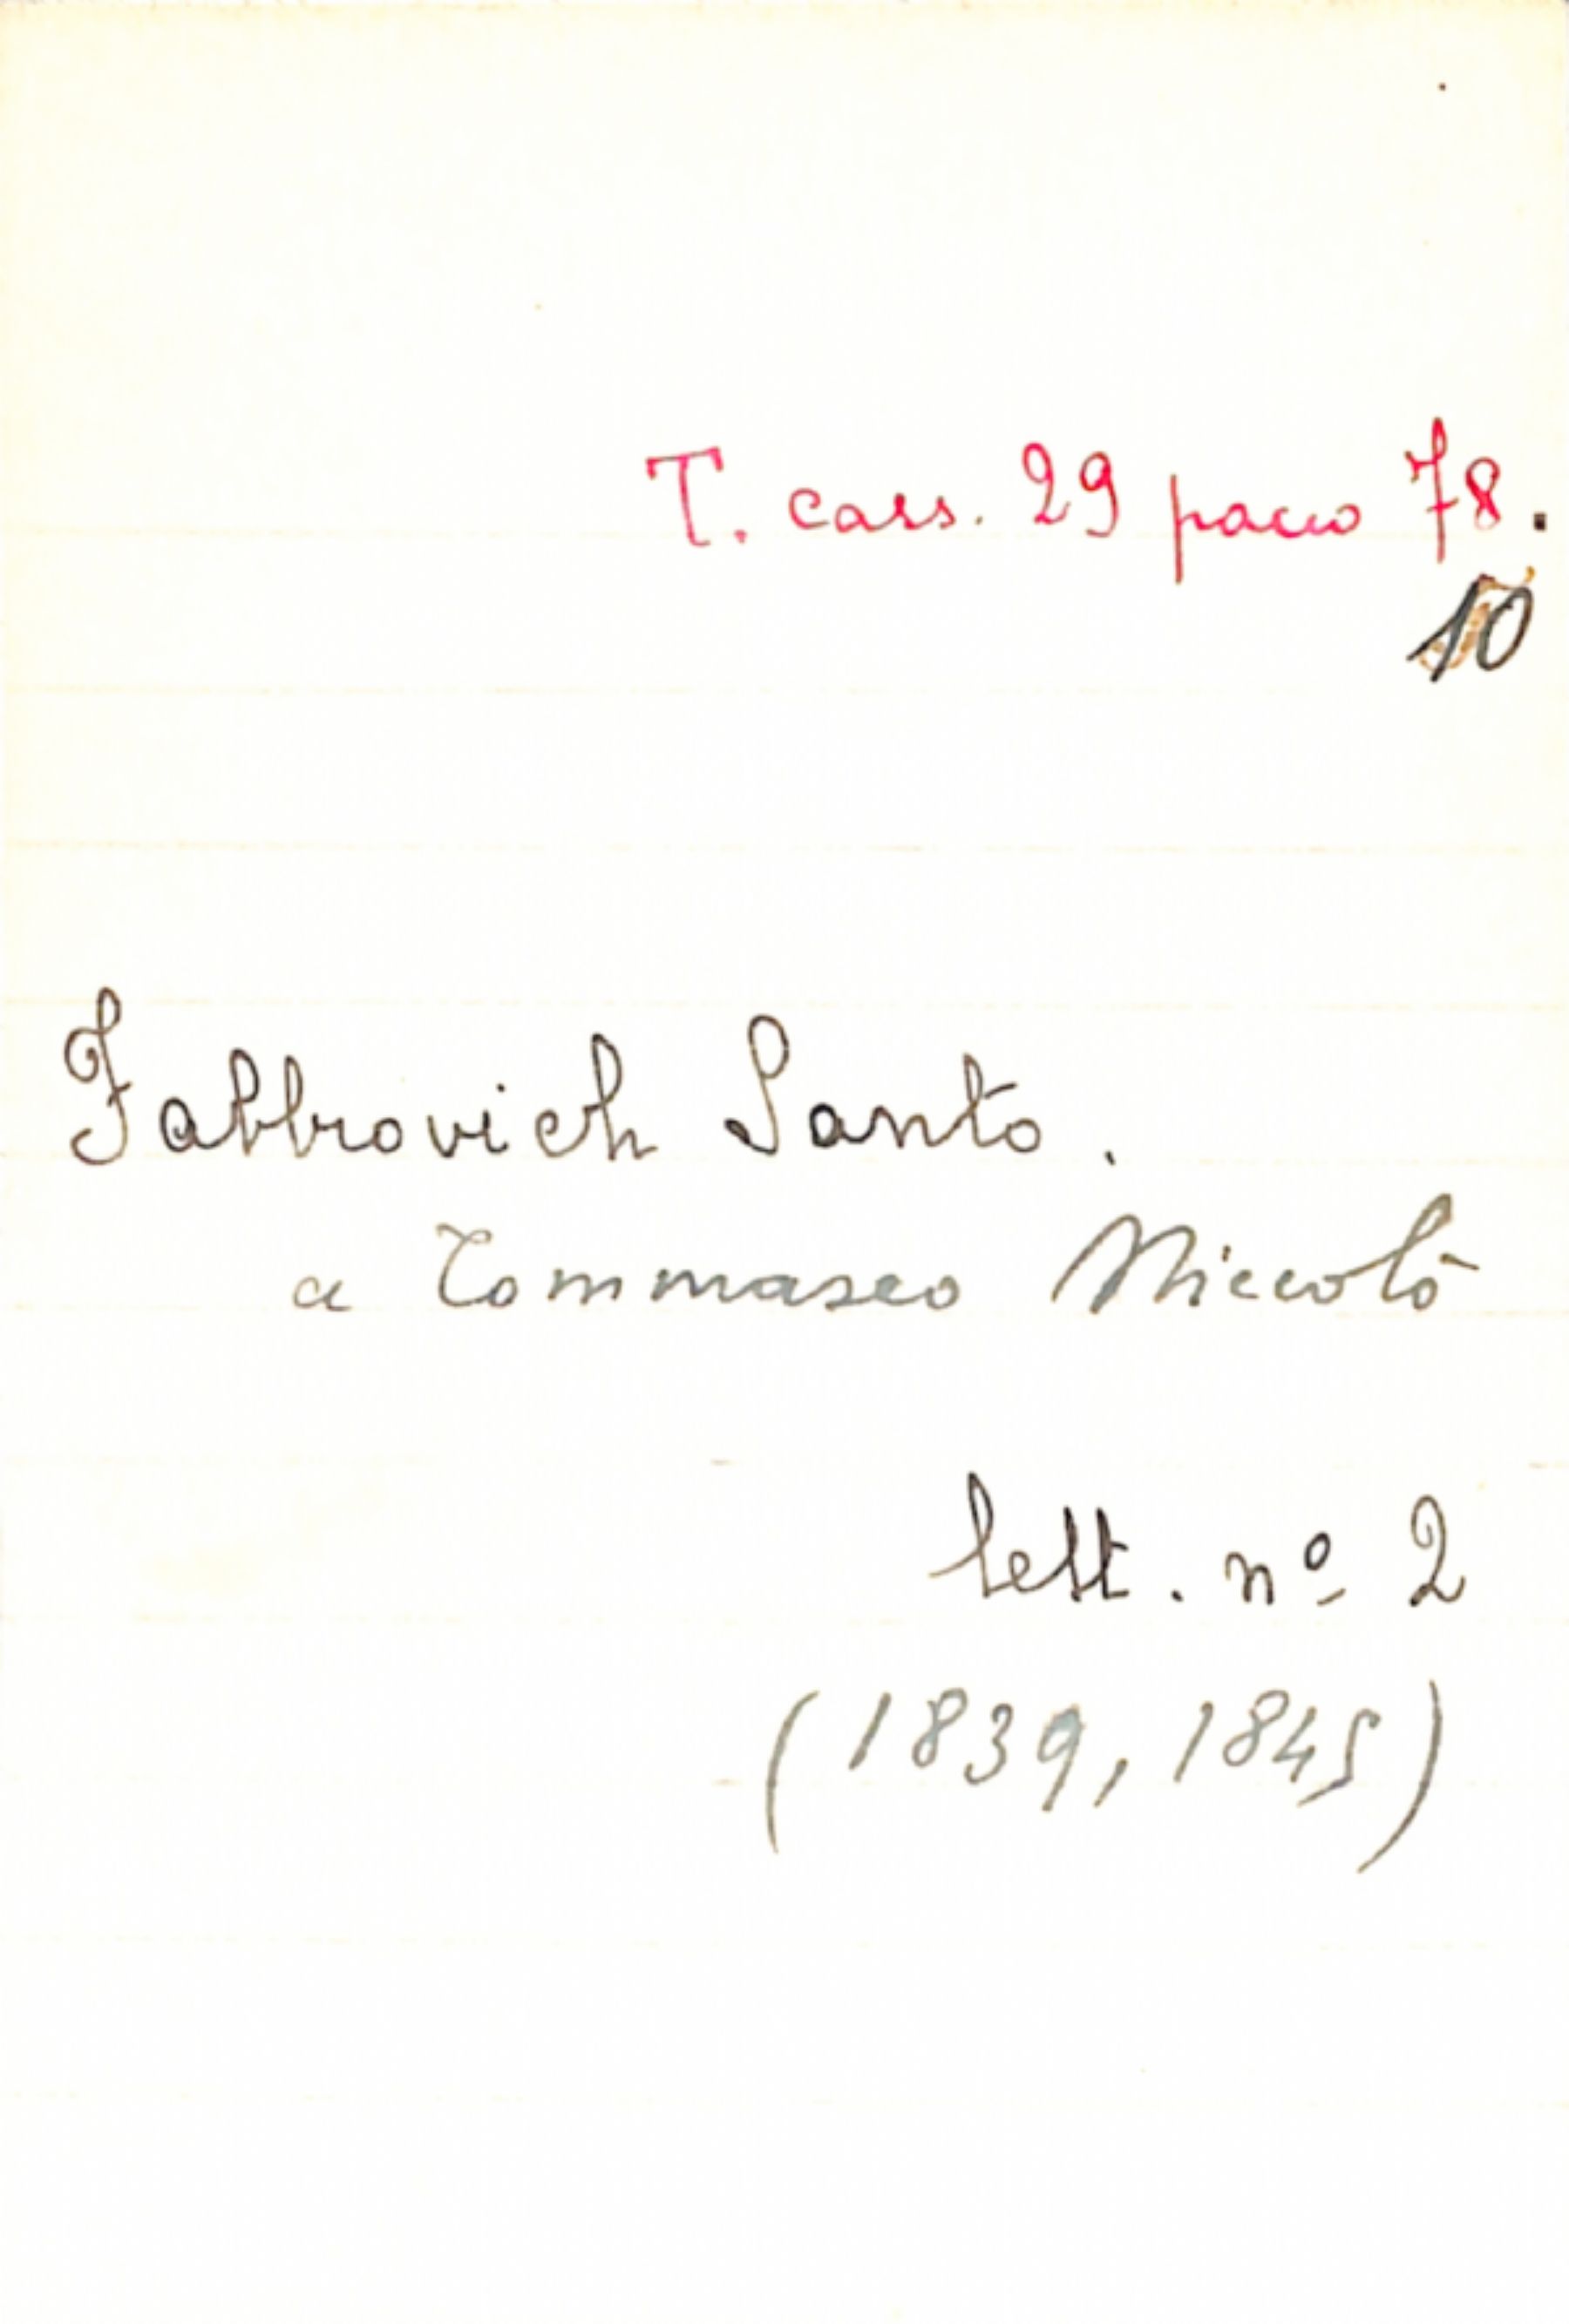 T. cass. 29 pacco 78.
10
Fabbrovich Santo.
a Tommaseo Niccolò
lett. nº 2
(1839, 1845)